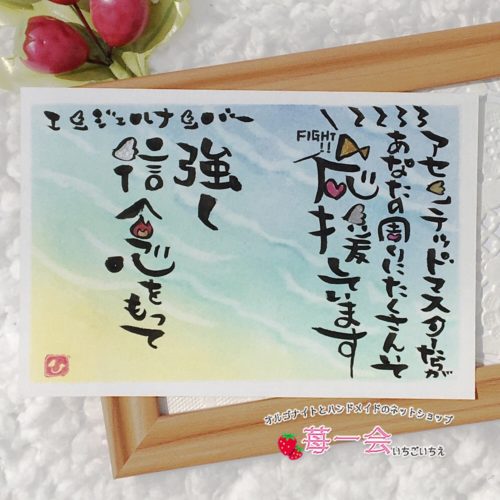 エンジェルナンバー
1233
アセンテッドマスターたちが
あなたの周りにたくさんいて
FIGHT!!
応援しています
強く
信念をもって
ひ
オルゴナイトとハンドメイドのネットショップ
苺一会いちごいちえ